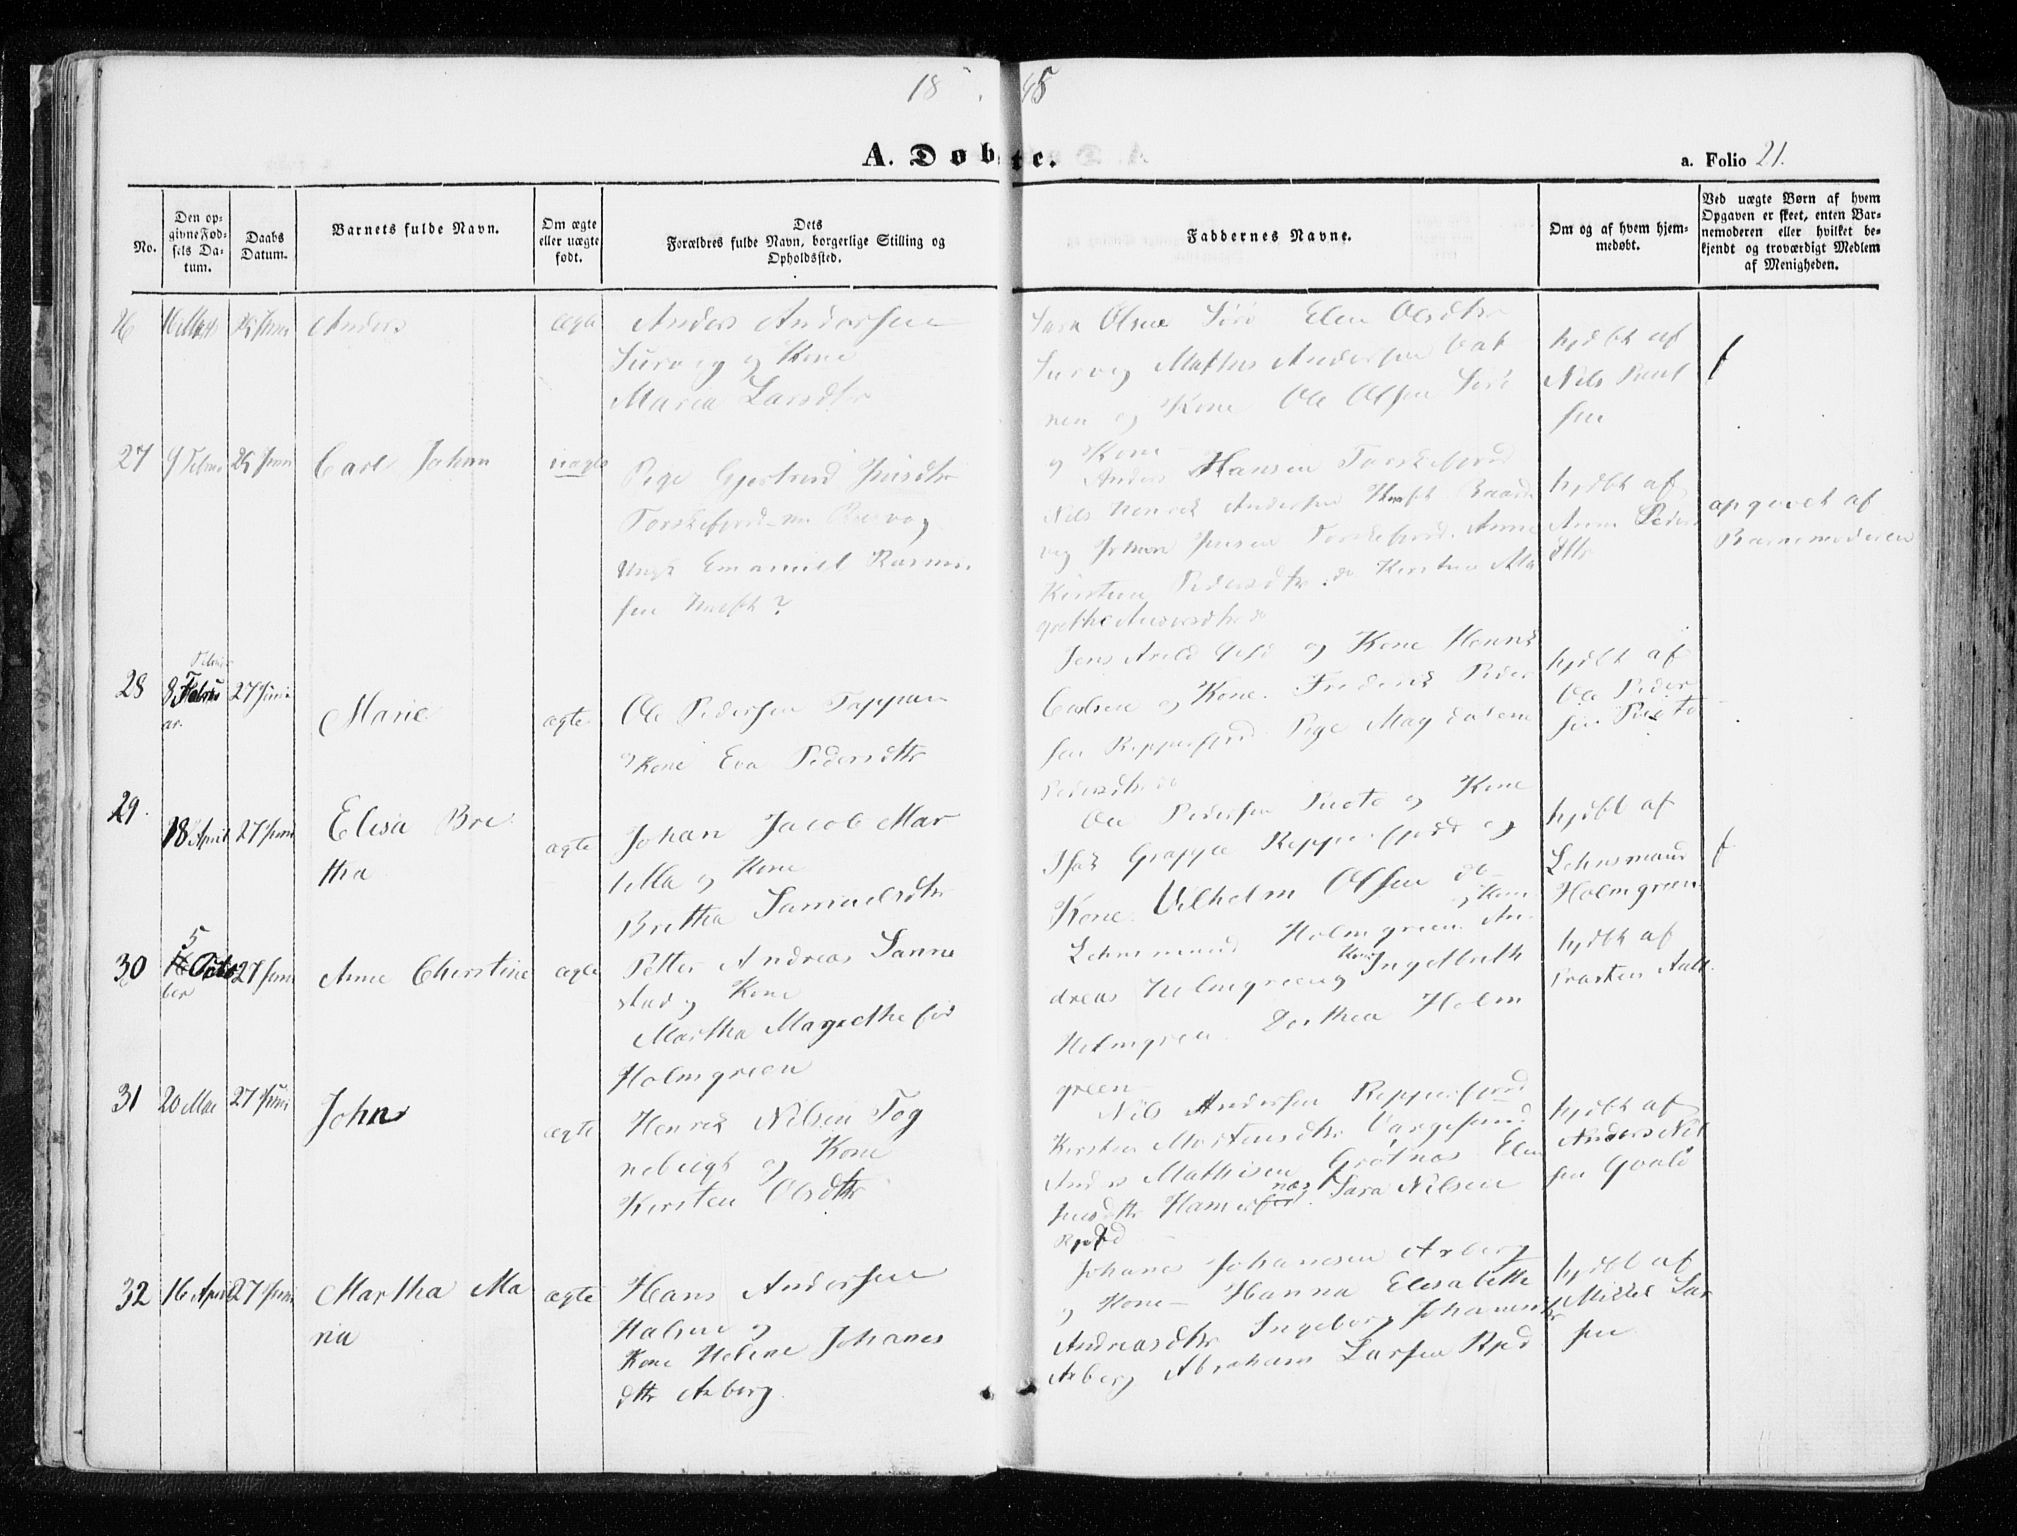 18 48
A. Døbte.
a. Folio 21.
No.
Den opgivne Fødsels Datum.
Daabs Datum.
Barnets fulde Navn.
Om ægte eller uægte født.
Dets Forældres fulde Navn, borgerlige Stilling og Opholdssted.
Faddernes Navne.
Om og af hvem hjemmedøbt.
Ved uægte Børn af hvem Opgaven er skeet, enten Barnemoderen eller hvilket bekjendt og troværdigt Medlem af Menigheden.
26
Anders
ægte
Anders Andersen
og Kone
Maria Larsdtr
Olsen Elen Olsdtr
Mathis Andersen
og Kone Ole Olsen
og Kone
hjdbt af
Nils Paul
sen
27
Carl Johan
uægte
Pige Gjertrud Jensdtr
Torskefjord
Ungk Emanuel Rasmus
sen
Anders Hansen Torskefjord
Nils Henrik Andersen
Johan Jensen Torskefjord. Anne
Kirstine Pedersdtr do Kirsten Ma
grethe Andersdtr do
hjdbt af
Anne Peders
dtr
opgivet af
Barnemoderen
28
27 Juni
Marie
ægte
Ole Pedersen Toppan
og Kone Eva Pedersdtr
Jens og Kone Henrik
Carlsen og Kone. Frederik Peder
sen Repperfjord Pige Magdalene
Pedersdtr do
hjdbt af
Ole Peder
sen
29.
18 April
27 Juni
Elisa Bre
tha
ægte
Johan Jacob Mar
tilla og Kone
Britha Samuelsdtr
Ole Pedersen og Kone
Isak Grappe Repperfjord og
Kone. Vilhelm Olsen do
hjdbt af
Lehnsmand
Holmgreen
30
5
27 Juni
Anne Cherstine
ægte
Petter Andreas Sanne
stad og Kone
Martha Magrethe fød
Holmgreen
Lehnsmand Holmgreen og Kone An
dreas Holmgreen og Kone Ingebreth
Holmgreen. Dorthea Holm
green
hjdbt af
Prosten Aall.
31
20 Mai
27 Juni
John
ægte
Henrik Nilsen Tog
nebuigt og Kone
Kirsten Olsdtr
Nils Andersen Repperfjord
Kirsten Mortensdtr Vargesund
Anders Mathisen Grøtnæs Elen
Jensdtr Hamernæs Sara Nilsen
Rpfjd
hjdbt af
Anders Nil
sen Qvalø
32
16 April
27 Juni
Martha Ma
ria
ægte
Hans Andersen
Halsen og
Kone Helene Johanes
dtr Axberg.
Johanes Johanesen Axberg
og Kone Hanna Elisabeth
Andreasdtr Ingeborg Johanesdtr
Axberg Abraham Larsen Rpfd
hjdbt af
Mikkel Lar
sen